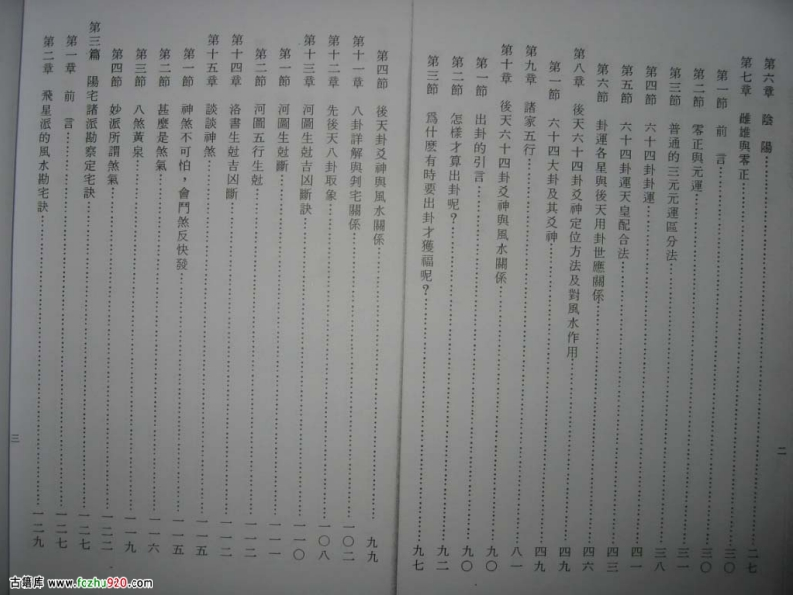 第六章　陰　陽…………二七
第七章　雌雄與零正
第一節　前　言…………三〇
第二節　零正與元運…………三〇
第三節　普通的三元元運區分法…………三一
第四節　六十四卦卦運…………三八
第五節　六十四卦運天皇配合法…………四一
第六節　卦運各星與後天用卦世應關係…………四三
第八章　後天六十四卦爻神定位方法及對風水作用…………四六
第一節　六十四大卦及其爻神…………四九
第九章　諸家五行…………四九
第十章　後天六十四卦爻神與風水關係…………八一
第一節　出卦的引言…………九〇
第二節　怎樣才算出卦呢？…………九〇
第三節　爲什麼有時要出卦才獲福呢？…………九二
九七
二
第四節　後天卦爻神與風水關係…………九九
第十一章　八卦詳解與剥宅關係…………一〇二
第十二章　先後天八卦取象…………一〇八
第十三章　河圖生尅吉凶斷訣…………一一〇
第一節　河圖生尅斷…………一一一
第二節　河圖五行生尅…………一一二
第十四章　洛書生尅吉凶斷…………一一二
第十五章　談談神煞…………一一五
第一節　神煞不可怕，會鬥煞反快發…………一一五
第二節　甚麼是煞氣…………一一六
第三節　八煞黃泉…………一一九
第四節　妙派所謂煞氣…………一二二
第三篇　陽宅諸派勘察定宅訣…………一二七
第一章　前　言…………一二七
第二章　飛星派的風水勘宅訣…………一二九
三
古籍库 www.fczhu920.com